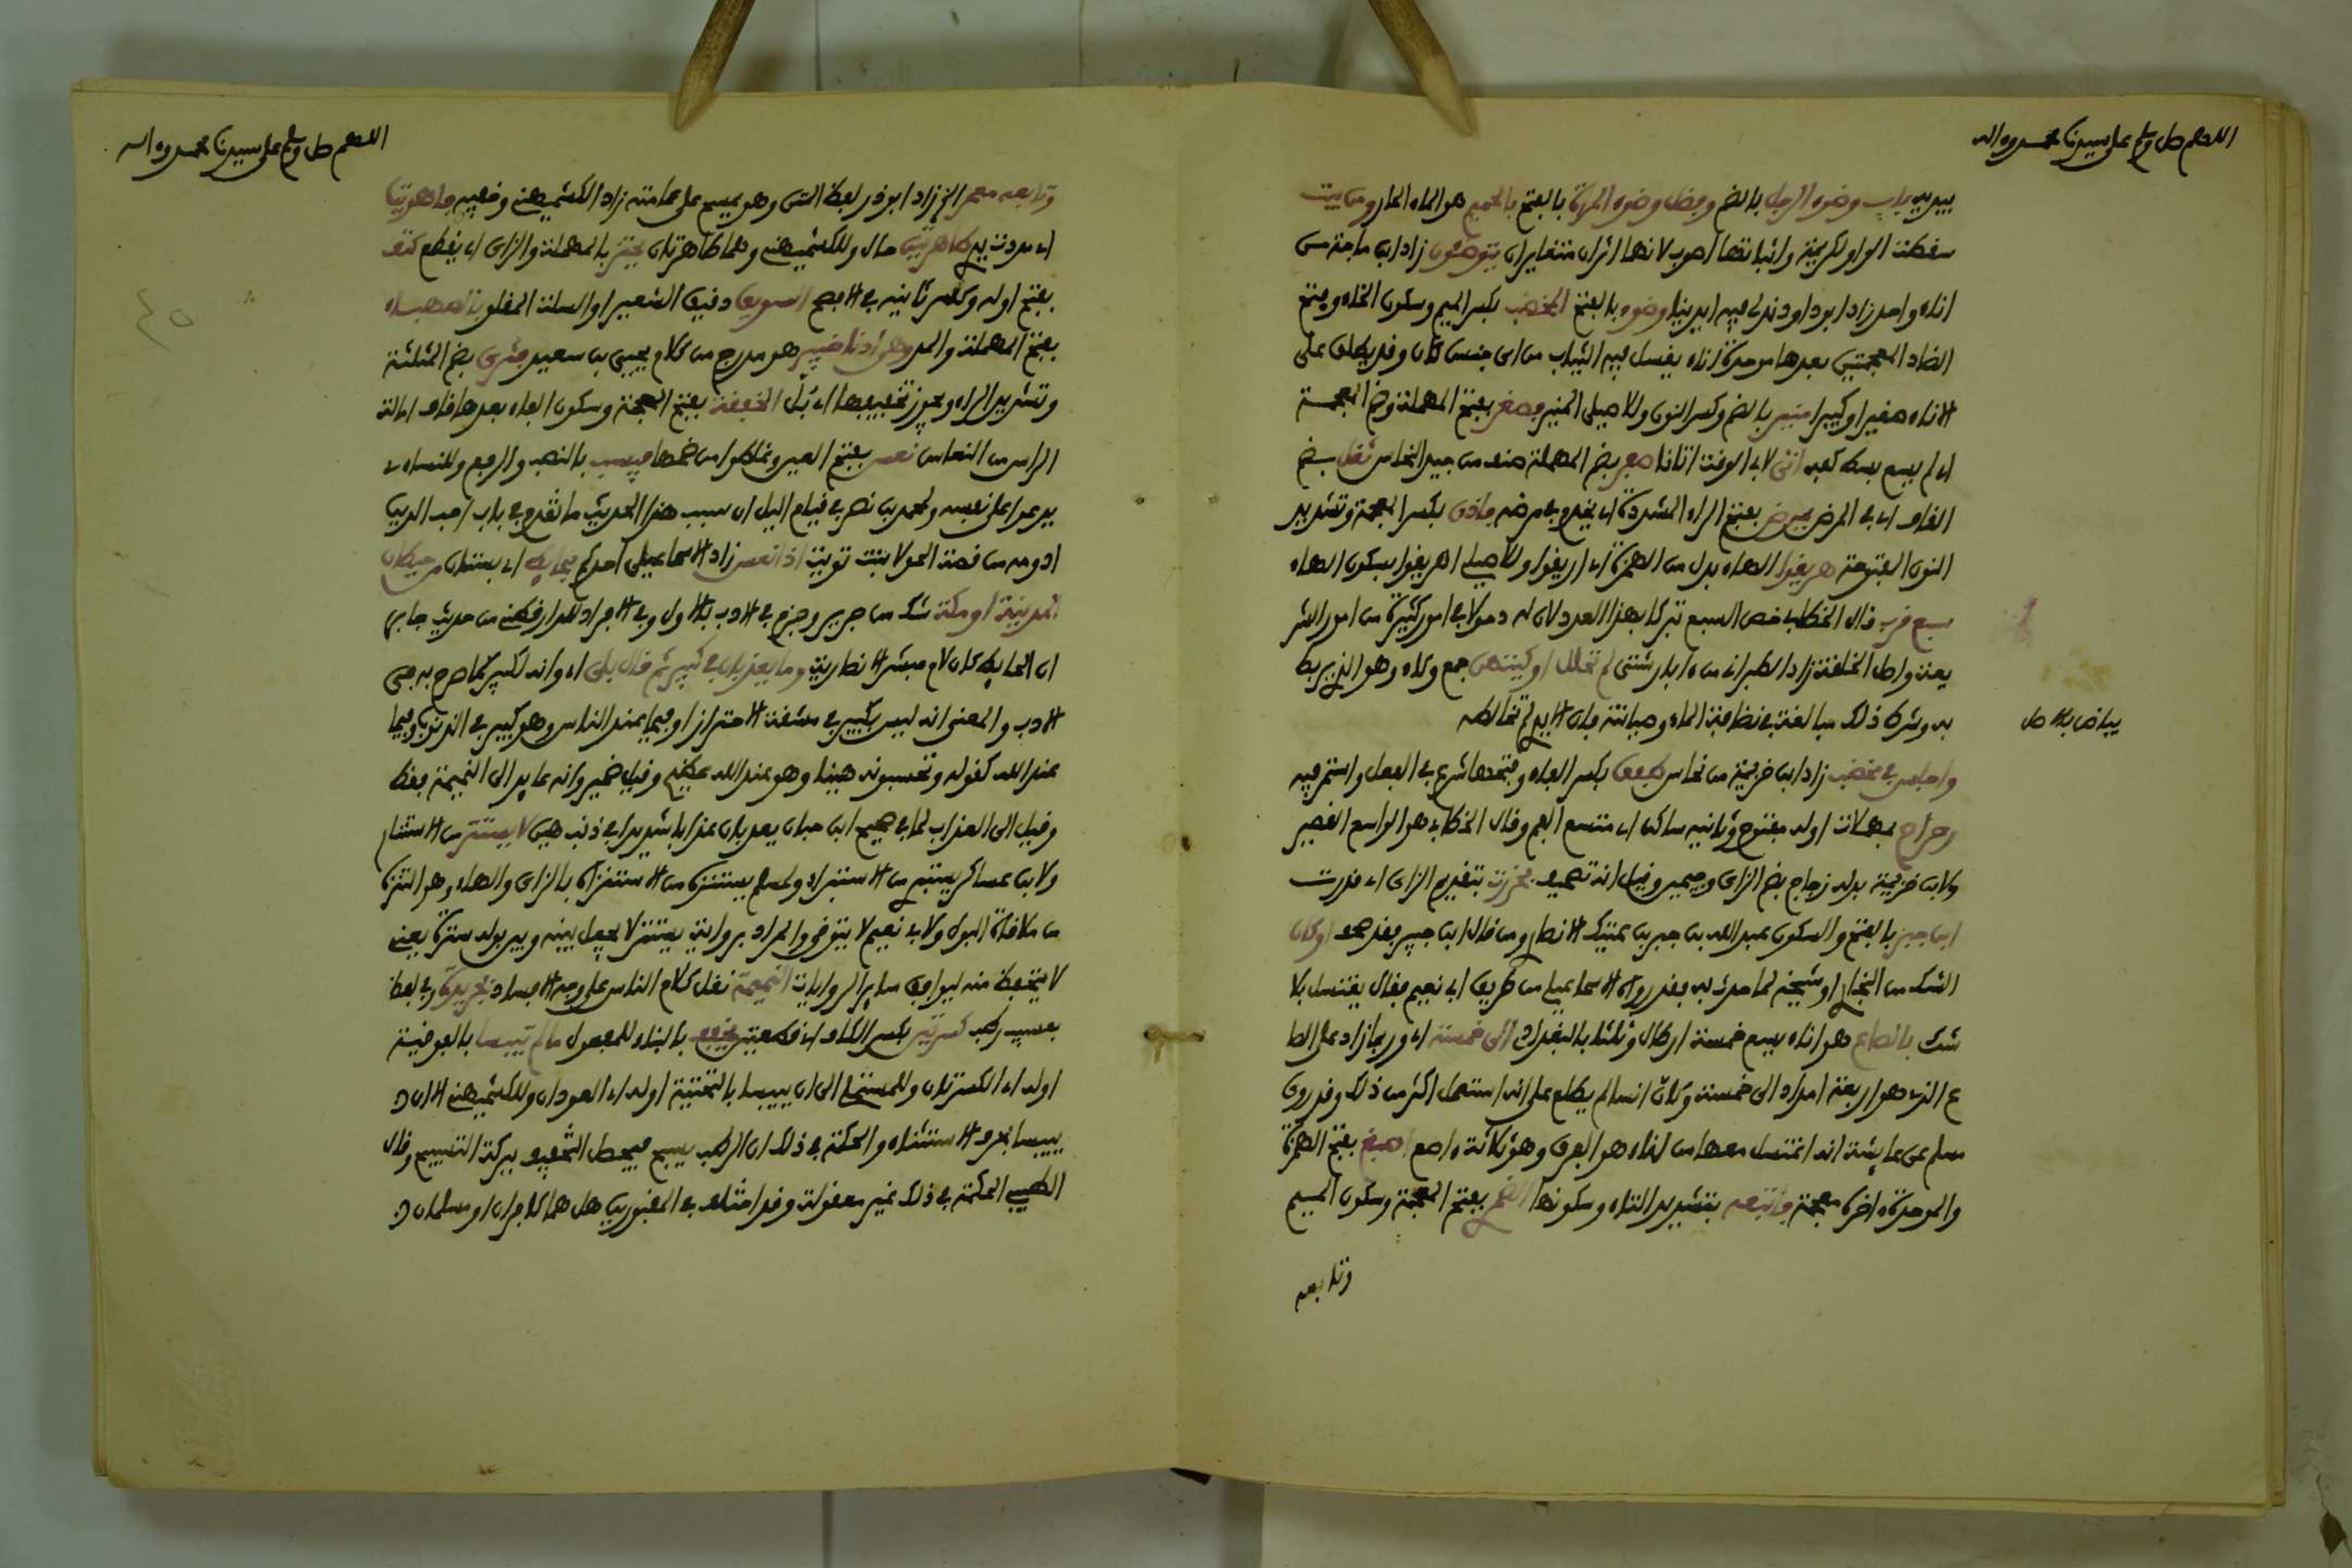 اللهم صل وسلم على سيدنا محمد وءاله
يديه باب وضوء الرجل بالضم وفضل وضوء المرأة بالفتح بالحميم هو الماء الحار ومن بيت
سقطت الواو لكريمة واثباتها اصوب لانهما اثران متغايران يتوضئون زاد ابن ماجة من
اناء واحد زاد ابو داود ندلي فيه ايدينا وضوءه بالفتح المخضب بكسر الميم وسكون الخاء وفتح
الضاد المعجمتين بعدها موحدة اناء يغسل فيه الثياب من اي جنس كان وقد يطلق على
الاناء صغيرا او كبيرا منير بالضم وكسر النون وللاصيلي المنير فصغر بفتح المهملة وضم المعجمة
اي لم يسع بسط كفه اتى لابي الوقت اتانا صفر بضم المهملة صنف من جيد النحاس ثقل بضم
القاف اي في المرض يمرض بفتح الراء المشددة اي يخدم في مرضه فاذن بكسر المعجمة وتشديد
النون المفتوحة هريقوا الهاء بدل من الهمزة اي اريقوا وللاصيلي اهريقوا بسكون الهاء
سبع قرب قال الخطابي خص السبع تبركا بهذا العدد لان له دخولا في امور كثيرة من امور الشر
يعة واصل الخلقة زاد الطبراني من ءابار شتى لم تحلل اوكيتهن جمع وكاء وهو الذي يربط
به وشرط ذلك مبالغة في نظافة الماء وصيانته فان الايدي لم تخالطه
بياض بالاصل
واجلس في مخضب زاد ابن خزيمة من نحاس طفق بكسر الفاء وفتحها شرع في الفعل واستمر فيه
رحراح بمهملات اوله مفتوح وثانيه ساكن اي متسع الفم وقال الخطابي هو الواسع القصير
ولابن خزيمة بدله زجاج بضم الزاي وجيمين وقيل انه تصحيف فحزرت بتقديم الزاي اي قدرت
ابن جبر بالفتح والسكون عبد الله بن جبر بن عتيك الانصاري ومن قال ابن جبير فقد صحف او كان
الشك من البخاري او شيخه لما حدث به فقد رواه الاسماعيلي من طريق ابي نعيم فقال يغتسل بلا
شك بالصاع هو اناء يسع خمسة ارطال وثلثا بالبغدادي الى خمسة اي وربما زاد على الصا
ع الذي هو اربعة امداد الى خمسة وكان انسا لم يطلع على انه استعمل اكثر من ذلك وقد روى
مسلم عن عايشة انه اغتسل معها من اناء هو الفرق وهو ثلاثة ءاصع اصبغ بفتح الهمزة
والموحدة ءاخره معجمة واتبعه بتشديد التاء وسكونها الضمري بفتح المعجمة وسكون الميم
وتابعه
اللهم صل وسلم على سيدنا محمد وءاله
وتابعه معمر الخ زاد ابو ذر لفظ المتن وهو يمسح على عمامته زاد الكشميهني وخفيه فاهويت
اي مددت يدي طاهرتين حال وللكشميهني وهما طاهرتان يحتز بالمهملة والزاي اي يقطع كتف
بفتح اوله وكسر ثانيه في الافصح السويق دقيق الشعير او السلت المقلو بالصهباء
بفتح المهملة والمد وهي ادنى خيبر هو مدرج من كلام يحيى بن سعيد فثري بضم المثلثة
وتشديد الراء ويجوز تخفيفها اي بُلّ الخفقة بفتح المعجمة وسكون الفاء بعدها قاف امالة
الراس من النعاس نعس بفتح العين وغلطوا من ضمها فيسب بالنصب والرفع وللنساءي
يدعوا على نفسه ولمحمد بن نصر في قيام اليل ان سبب هذا الحديث ما تقدم في باب احب الدين
ادومه من قصة الحولا بنت تويت اذا نعس زاد الاسماعيلي احدكم بحايط اي بستان من حيطان
المدينة او مكة شك من جرير وجزم في الادب بالاول وفي الافراد للدارقطني من حديث جابر
ان الحايط كان لام مبشر الانصارية وما يعذبان في كبير ثم قال بلى اي وانه لكبير كما صرح به في
الادب والمعنى انه ليس بكبير في مشقة الاحتراز او فيما عند الناس وهو كبير في الذنوب وفيما
عند الله كقوله وتحسبونه هينا وهو عند الله عظيم وقيل ضمير وانه عايد الى النميمة فقط
وقيل الى العذاب لما في صحيح ابن حبان يعذبان عذابا شديدا في ذنب هين لا يستتر من الاستتار
ولابن عساكر يستبري من الاستبراء ولمسلم يستنزه من الاستنزاه بالزاي والهاء وهو التنزه
من ملاقاة البول ولابي نعيم لا يتوقى والمراد برواية يستتر لا يجعل بينه وبين بوله سترة يعني
لا يتحفظ منه ليوافق ساير الروايات النميمة نقل كلام الناس على وجه الافساد بجريدة وفي لفظ
بعسيب رطب كسرتين بكسر الكاف اي قطعتين يخفف بالبناء للمفعول مالم تيبسا بالفوقية
اوله اي الكسرتان وللمستملي الى ان ييبسا بالتحتية اوله اي العودان وللكشميهني الا ان
ييبسا بحرف الاستثناء والحكمة في ذلك ان الرطب يسبح فيحصل التخفيف ببركة التسبيح وقال
الطيبي الحكمة في ذلك غير معقولة وقد اختلف في المقبورين هل هما كافران او مسلمان